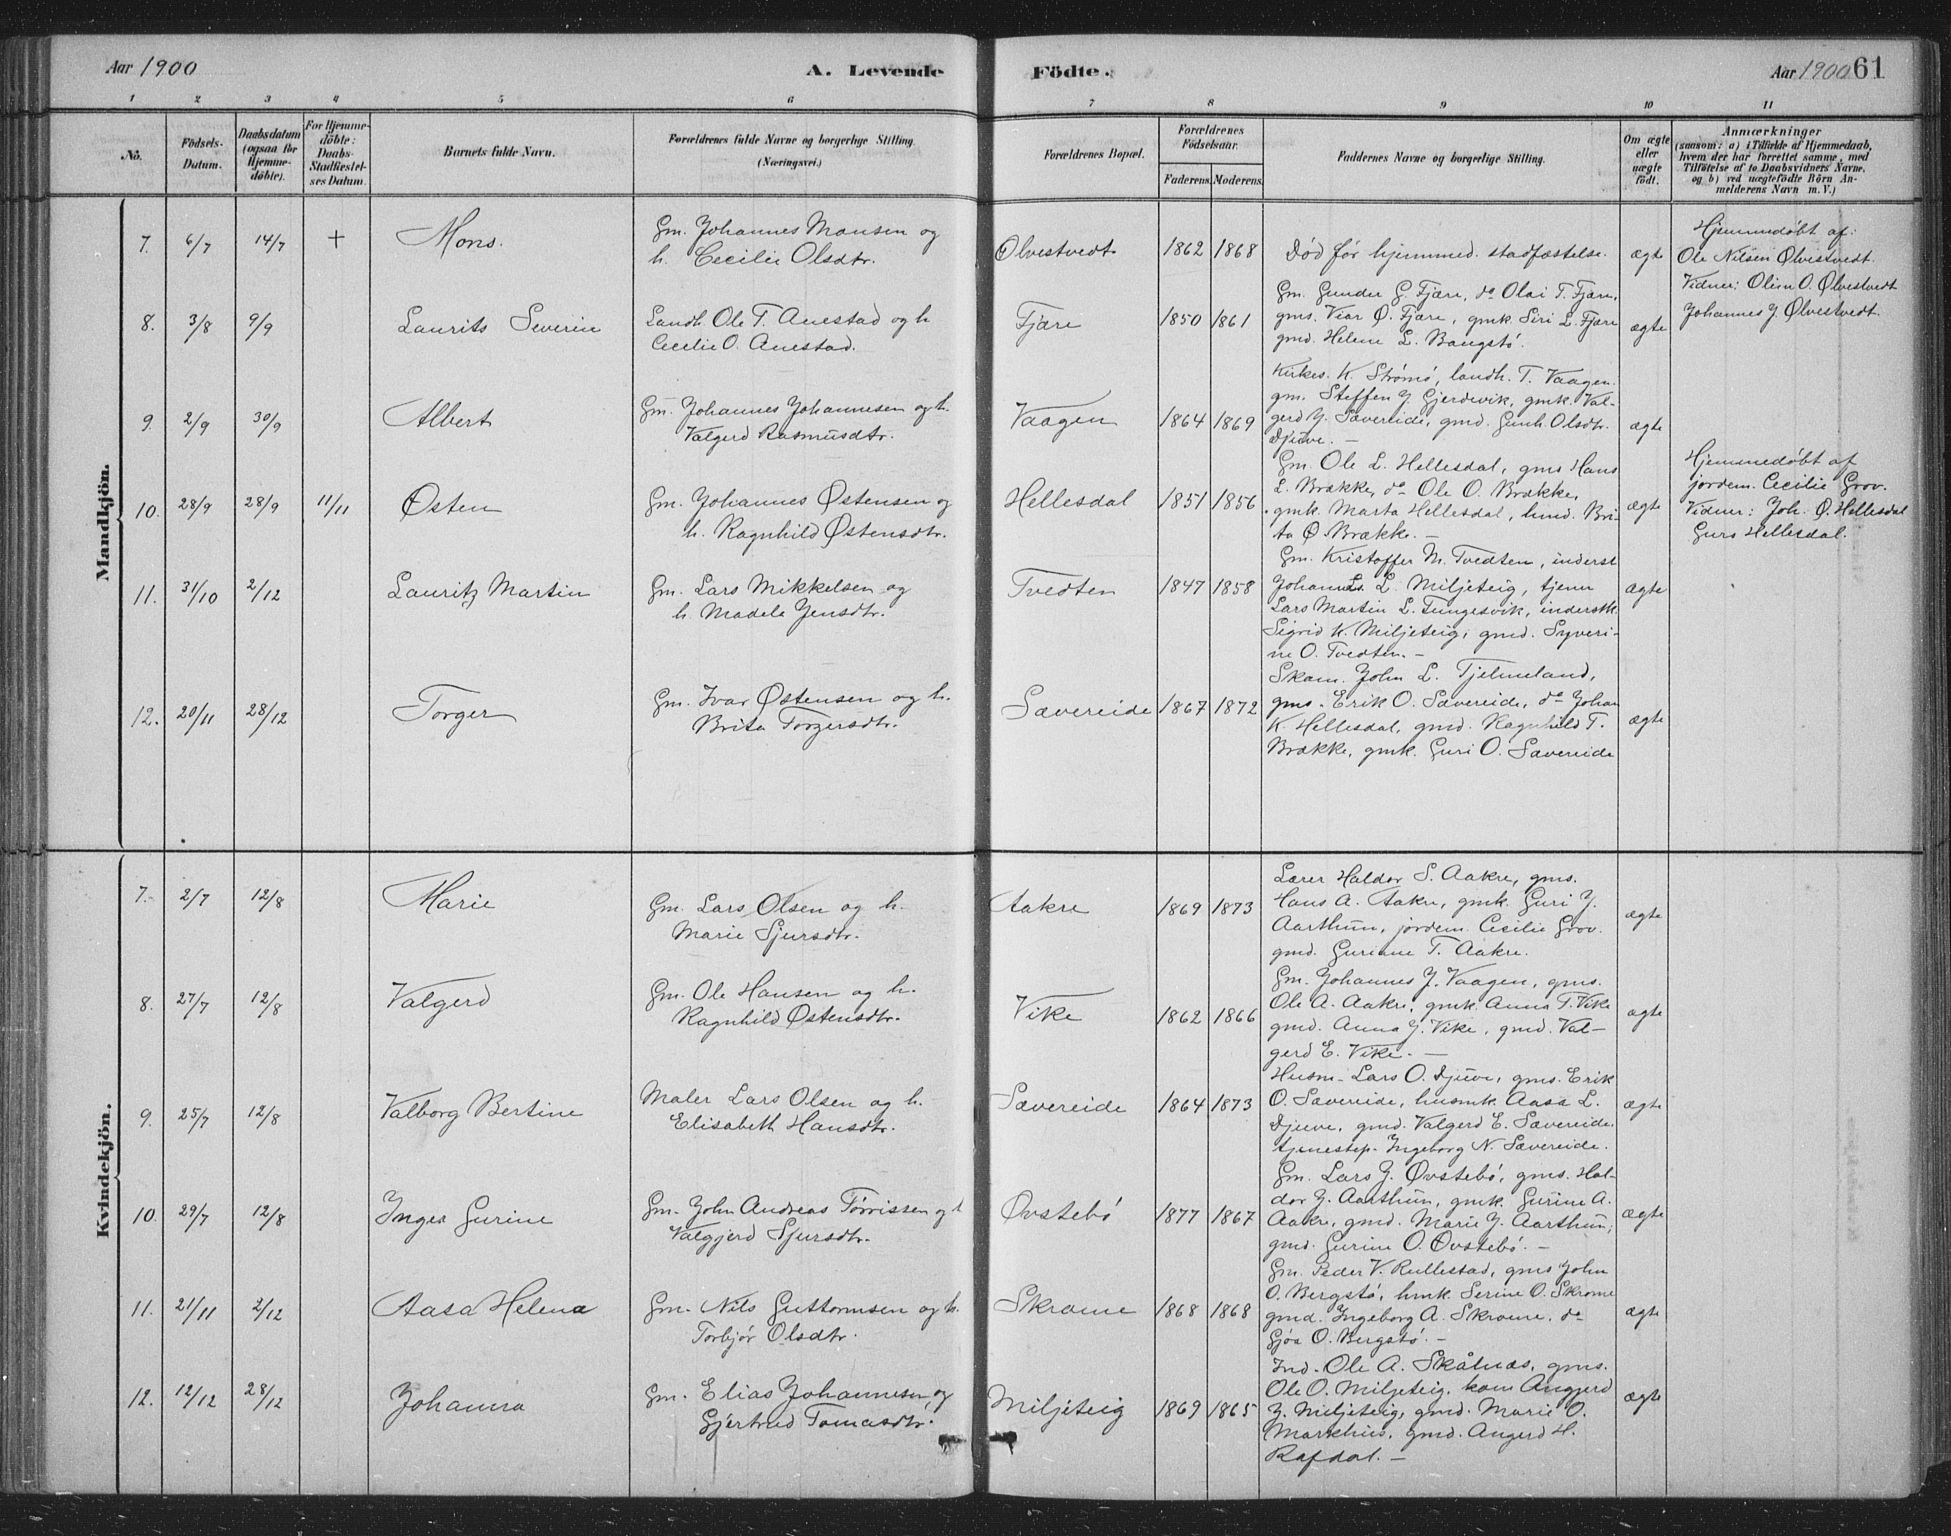 Aar 1900
A. Levende Födte.
Aar 1900 61
1 2 3 4 5 6 7 8 9 10 11
No.
Födsels-
Datum.
Daabsdatum
(ogsaa for
Hjemme-
döbte).
For Hjemme-
döbte:
Daabs-
Stadfæstel-
ses Datum.
Barnets fulde Navn.
Forældrenes fulde Navne og borgerlige Stilling.
(Næringsvei.)
Forældrenes Bopæl.
Forældrenes
Födselsaar.
Faderens. Moderens.
Faddernes Navne og borgerlige Stilling.
Om ægte
eller
uægte
födt.
Anmærkninger
(saasom: a) i Tilfælde af Hjemmedaab,
hvem der har forrettet samme, med
Tilföielse af to Daabsvidners Navne,
og b) ved uægtefödte Börn An-
melderens Navn m. V.)
Mandkjön.
7. 6/7 14/7 + Mons.
Gm. Johannes Monsen og
h. Cecilie Olsdtr.
Ølvestvedt 1862 1868
Død før hjemmed. stadfæstelse.
ægte
Hjemmedøbt af:
Ole Nilsen Ølvestvedt.
Vidner: Olien O. Ølvestvedt
Johannes J. Ølvestvedt.
8. 3/8 9/9 Laurits Severin
Landh. Ole T. Anestad og h
Cecilie O. Anestad.
Fjære 1850 1861
Gm. Gunder G. Fjære, do Olai T. Fjære,
gms. Vear Ø. Fjære, gmk. Siri L. Fjære
gmd. Helene L. Bangstø.
ægte
9. 2/9 30/9 Albert
Gm. Johannes Johannesen og h.
Valgerd Rasmusdtr.
Vaagen 1864 1869
Kirkes. K. Strømø, landh. T. Vaagen.
gm. Steffen J. Gjerdevik, gmk. Val-
gerd J. Sævereide, gmd. Gunh. Olsdtr.
Djuve. —
ægte
10. 28/9 28/9 11/11 Østen
Gm. Johannes Østensen og
h. Ragnhild Østensdtr.
Hellesdal 1851 1856
Gm. Ole L. Hellesdal, gms Hans
L. Brække, do Ole O. Brække,
gmk. Marta Hellesdal, hmd. Bri-
ta Ø Brække. —
ægte
Hjemmedøbt af
jordem. Cecilie Grov.
Vidner: Joh. Ø. Hellesdal
Guro Hellesdal.
11. 31/10 2/12 Lauritz Martin
Gm. Lars Mikkelsen og
h. Madela Jensdtr.
Tvedten 1847 1858
Gm. Kristoffer M. Tvedten, inderst
Johannes L. Miljeteig, tjener
Lars Martin L. Tungesvik, inderstk.
Sigrid K. Miljeteig, gmd. Syveri-
ne O. Tvedten. —
ægte
12. 20/11 28/12 Torger
Gm. Ivar Østensen og h.
Brita Torgersdtr.
Sævereide 1867 1872
Skom. John L. Tjelmeland,
gms. Erik O. Sævereide, do Johan
K. Hellesdal, gmd. Ragnhild T.
Brække, gmk. Guri O. Sævereide
ægte
Kvindekjön.
7. 2/7 12/8 Marie
Gm. Lars Olsen og h.
Marie Sjursdtr.
Aakre 1869 1873
Lærer Haldor S. Aakre, gms.
Hans A. Aakre, gmk. Guri J.
Aarthun, jordem. Cecilie Grov.
gmd. Gurine T. Aakre.
ægte
8. 27/7 12/8 Valgerd
Gm. Ole Hansen og h.
Ragnhild Østensdtr.
Vike 1862 1866
Gm. Johannes J. Vaagen, gms.
Ole A. Aakre, gmk. Anna T. Vike
gmd. Anna J. Vike, gmd. Val-
gerd E. Vike. —
ægte
9. 25/7 12/8 Valborg Bertine
Maler Lars Olsen og h.
Elisabeth Hansdtr.
Sævereide 1864 1873
Husm. Lars O. Djuve, gms. Erik
O. Sævereide, husmk. Aasa L.
Djuve, gmd. Valgerd E. Sævereide.
tjenestep. Ingeborg N. Sævereide.
ægte
10. 29/7 12/8 Inger Gurine
Gm. John Andreas Tørrissen og
Valgjerd Sjursdtr.
Øvstebø 1877 1867
Gm. Lars J. Øvstebø, gms. Hal-
dor J. Aarthun, gmk. Gurine A.
Aakre, gmd. Marie J. Aarthun,
gmd. Gurine O. Øvstebø. —
ægte
11. 21/11 2/12 Aasa Helena
Gm. Nils Guttormsen og h.
Torbjør Olsdtr.
Skrome 1868 1868
Gm. Peder V. Rullestad, gms John
O. Bergstø, hmk. Serine O. Skrome
gmd. Ingeborg A. Skrome, do
Gjøa O. Bergstø. —
ægte
12. 12/12 28/12 Johanna
Gm. Elias Johannesen og
Gjertrud Tomasdtr.
Miljeteig 1869 1865
Ind. Ole A. Skålnæs, gms.
Ole O. Miljeteig, kone Angjerd
J. Miljeteig, gmd. Marie O.
Markhus, gmd. Angerd H.
Rafdal. —
ægte